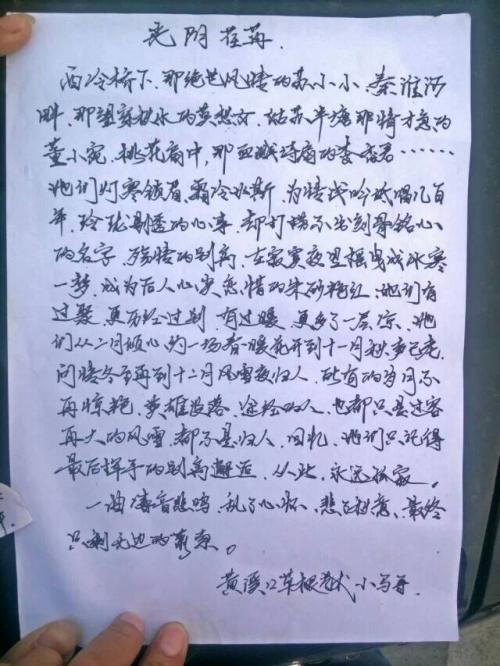 光阴荏苒.
西冷桥下,那绝世风情的苏小小,秦淮河
畔,那望穿秋水的 ,姑苏半塘那情才意的
董小宛,桃花扇中,那血溅诗扇的李香君……
她们灯寒锁眉,霜冷水斯,为情浅吟低唱几百
年,玲珑剔透的心事,却打捞不出刻骨铭心
的名字,残情的别离,在寂寞夜里摇曳成冰寒
一梦,成为后人心尖悲情的朱砂艳红,她们有
过聚,更历经过别,有过暖,更多了一层凉,她
们从二月倾心约一场春暖花开到十一月秋
问情冬至再到十二月风雪夜归人,所有的岁月不
再惊艳,梦摧没路,途经的人,也都只是过客
再大的风雪,都不是归人,回忆,她们只记得
最后挥手的别离邂逅,从此,永远孤寂。
一曲清音悲鸣,乱了心怀,悲了秋意,最终
只剩无边的萧索。
黄溪口草根